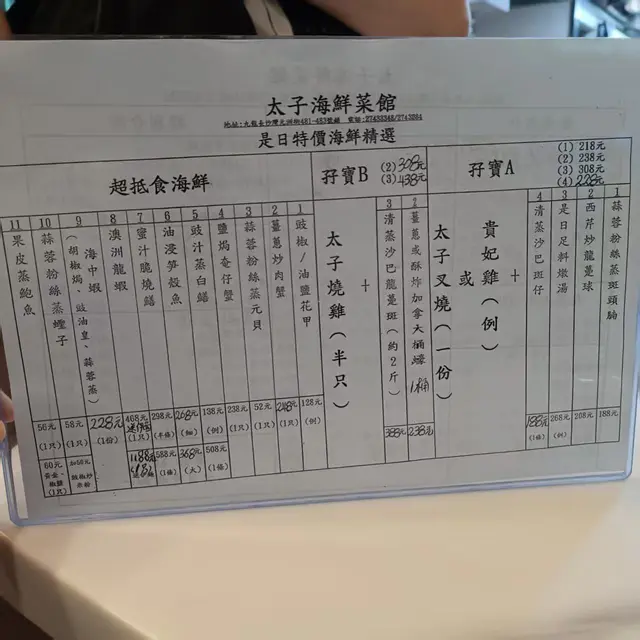 太子海鮮菜館
是日特價海鮮精選
孖寶A
(1) 218元
(2) 238元
(3) 308元
(4) 228元
1
蒜蓉粉絲蒸斑頭腩
188元
2
西芹炒龍躉球
208元
3
是日足料燉湯
268元
(例)
4
清蒸沙巴斑仔
188元
(1條)
+
貴妃雞(例)
或
太子叉燒(一份)
孖寶B
(2) 308元
(3) 438元
2
薑蔥或酥炸加拿大桶蠔 1桶
238元
3
清蒸沙巴龍躉斑(約2斤)
388元
+
太子燒雞(半只)
超抵食海鮮
1
豉椒/油鹽花甲
128元
(例)
2
薑蔥炒肉蟹
248元
(1只)
3
蒜蓉粉絲蒸元貝
52元
(1只)
4
鹽焗奄仔蟹
238元
(1只)
5
豉汁蒸白鱔
138元
(例)
508元
(1條)
6
油浸筍殼魚
268元
(細)
368元
(大)
7
蜜汁脆燒鱔
298元
(半條)
588元
(1條)
8
澳洲龍蝦
468元
(1只)
1188元
9
海中蝦
(胡椒焗、豉油皇、蒜蓉蒸)
228元
(1份)
10
蒜蓉粉絲蒸蟶子
58元
(1只)
加56元
豉椒炒
米粉
11
果皮蒸鮑魚
56元
(1只)
60元
(1只)